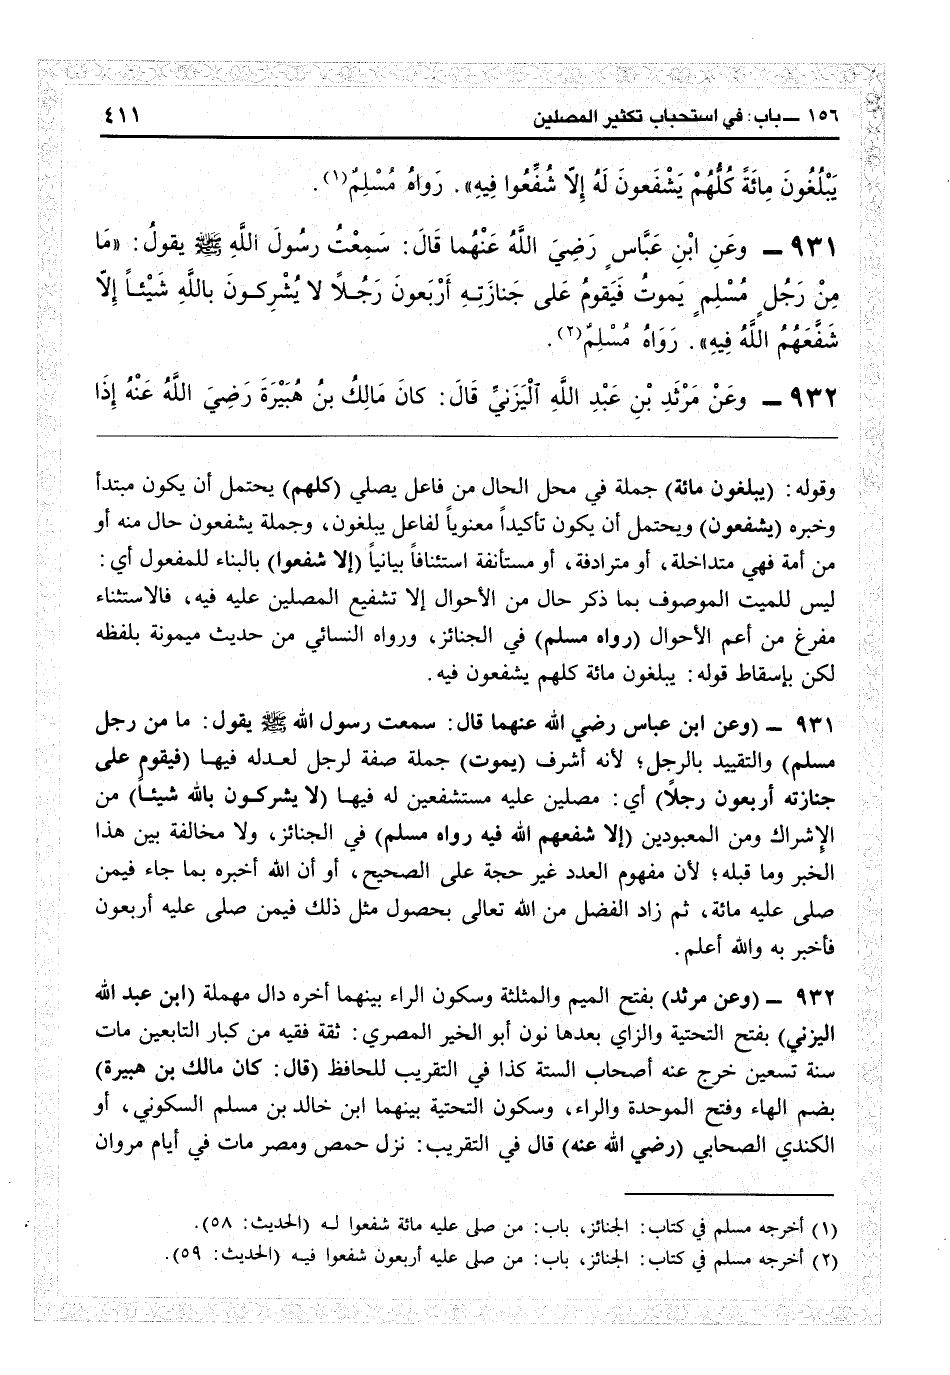 ١٥٦ ــ باب: في استحباب تكثير المصلين ٤١١
يَبْلُغُونَ مِائَةً كُلُّهُمْ يَشْفَعونَ لَهُ إِلَّا شُفِّعُوا فِيهِ». رَواهُ مُسْلِمٌ(١).
٩٣١ ــ وعَنِ ابْنِ عَبَّاسٍ رَضِيَ اللَّهُ عَنْهُما قَالَ: سَمِعْتُ رسُولَ اللَّهِ ﷺ يقولُ: «مَا
مِنْ رَجُلٍ مُسْلِمٍ يَموتُ فَيَقومُ عَلى جَنازَتِهِ أَرْبَعونَ رَجُـلًا لا يُشْرِكـونَ باللَّهِ شَيْئـاً إِلّا
شَفَّعَهُمُ اللَّهُ فِيهِ». رَوَاهُ مُسْلِمٌ(٢).
٩٣٢ ــ وعَنْ مَرْثَدِ بْنِ عَبْدِ اللَّهِ ٱلْيَزَنيِّ قَالَ: كانَ مَالِكُ بنُ هُبَيْرَةَ رَضِيَ اللَّهُ عَنْهُ إِذَا
وقوله: (يبلغون مائة) جملة في محل الحال من فاعل يصلي (كلهم) يحتمل أن يكون مبتدأ
وخبره (يشفعون) ويحتمل أن يكون تأكيداً معنوياً لفاعل يبلغون، وجملة يشفعون حال منه أو
من أمة فهي متداخلة، أو مترادفة، أو مستأنفة استئنافاً بيانياً (إلا شفعوا) بالبناء للمفعول أي:
ليس للميت الموصوف بما ذكر حال من الأحوال إلا تشفيع المصلين عليه فيه، فالاستثناء
مفرغ من أعم الأحوال (رواه مسلم) في الجنائز، ورواه النسائي من حديث ميمونة بلفظه
لكن بإسقاط قوله: يبلغون مائة كلهم يشفعون فيه.
٩٣١ ــ (وعن ابن عباس رضي الله عنهما قال: سمعت رسول الله ﷺ يقول: ما من رجل
مسلم) والتقييد بالرجل؛ لأنه أشرف (يموت) جملة صفة لرجل لعـدله فيهـا (فيقوم على
جنازته أربعون رجلاً) أي: مصلين عليه مستشفعين له فيهـا (لا يشركـون بالله شيئـاً) من
الإشراك ومن المعبودين (إلا شفعهم الله فيه رواه مسلم) في الجنائز، ولا مخالفة بين هذا
الخبر وما قبله؛ لأن مفهوم العدد غير حجة على الصحيح، أو أن الله أخبره بما جاء فيمن
صلى عليه مائة، ثم زاد الفضل من الله تعالى بحصول مثل ذلك فيمن صلى عليه أربعون
فأخبر به والله أعلم.
٩٣٢ ــ (وعن مرثد) بفتح الميم والمثلثة وسكون الراء بينهما أخره دال مهملة (ابن عبد الله
اليزني) بفتح التحتية والزاي بعدها نون أبو الخير المصري: ثقة فقيه من كبار التابعين مات
سنة تسعين خرج عنه أصحاب الستة كذا في التقريب للحافظ (قال: كان مالك بن هبيرة)
بضم الهاء وفتح الموحدة والراء، وسكون التحتية بينهما ابن خالد بن مسلم السكوني، أو
الكندي الصحابي (رضي الله عنه) قال في التقريب: نزل حمص ومصر مات في أيام مروان
(١) أخرجه مسلم في كتاب: الجنائز، باب: من صلى عليه مائة شفعوا لـه (الحديث: ٥٨).
(٢) أخرجه مسلم في كتاب: الجنائز، باب: من صلى عليه أربعون شفعوا فيـه (الحديث: ٥٩).